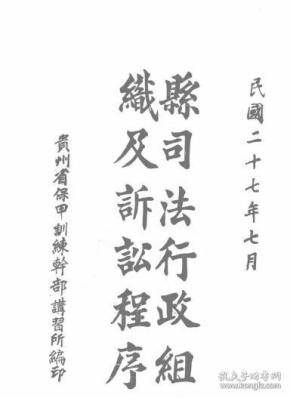 民國二十七年七月
縣司法行政組
織及訴訟程序
貴州省保甲訓練幹部講習所編印
孔夫子旧书网
www.kongfz.com